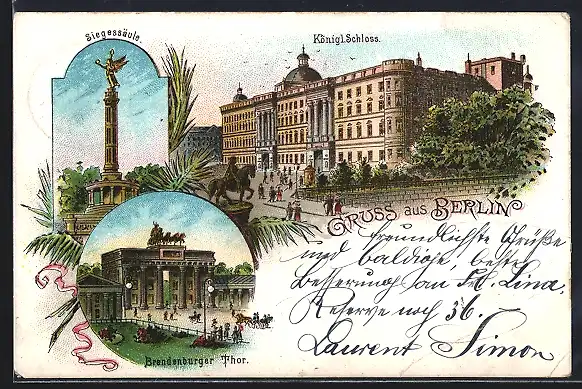 Siegessäule.
Königl. Schloss.
GRUSS aus BERLIN
Brandenburger Thor.
freundlichste Grüße
und baldige, beste
Besserung an Frl. Lina.
Reserve noch 36.
Laurent Simon